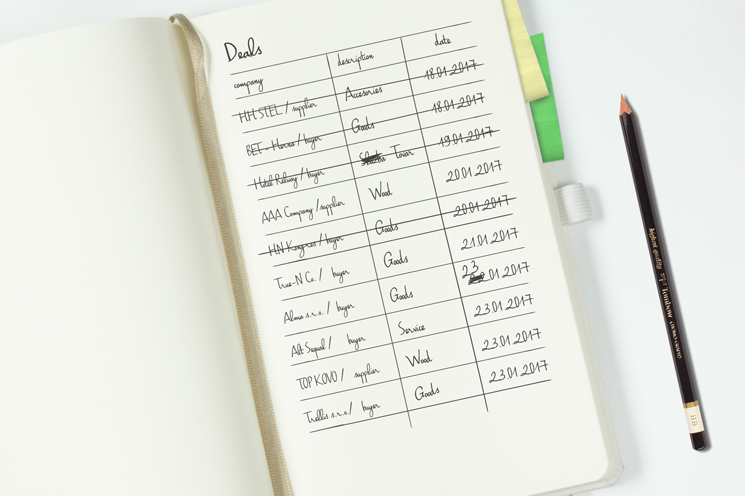 Deals
company description date
HH STEL / supplier Accesories 18.01.2017
BET - / buyer Goods 18.01.2017
Hotel / buyer Tovar 19.01.2017
AAA Company / supplier Wood 20.01.2017
HN Kongres / buyer Goods 20.01.2017
True-N Co. / buyer Goods 21.01.2017
Alma s.r.o. / buyer Goods 23.01.2017
Alt Sequal / buyer Service 23.01.2017
TOP KOVO / supplier Wood 23.01.2017
Trellis s.r.o. / buyer Goods 23.01.2017
Tombow
HB